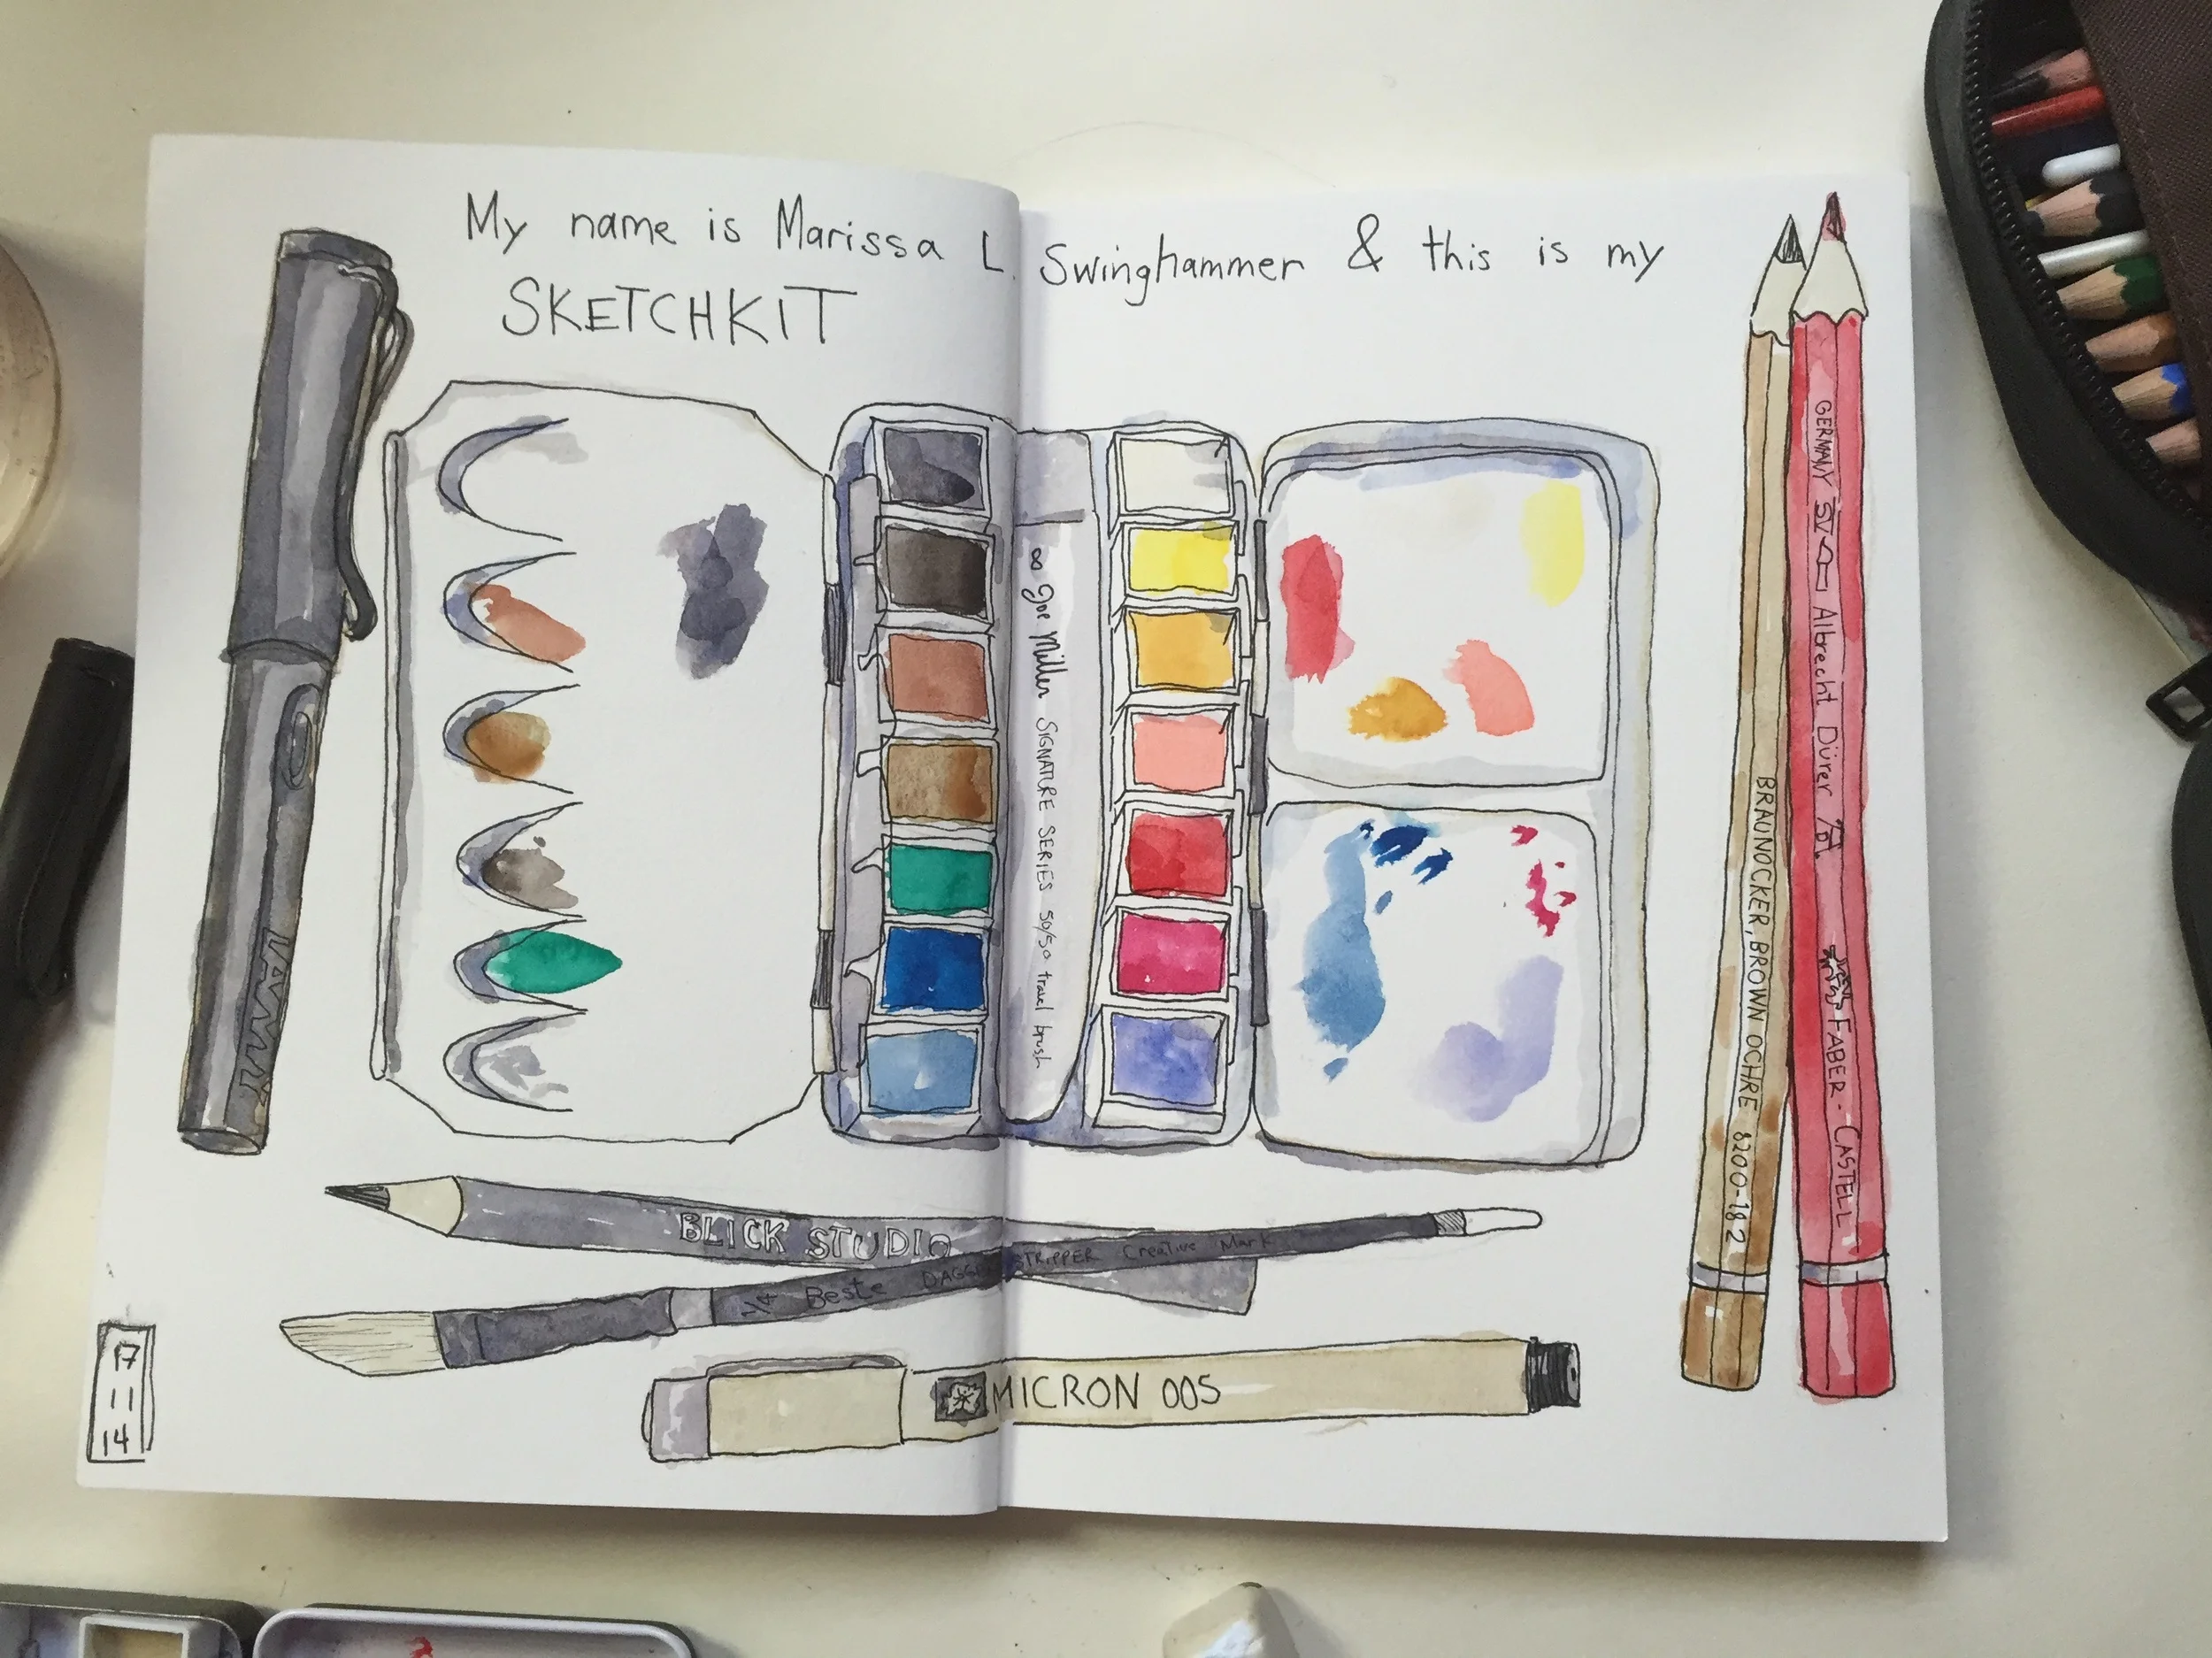 My name is Marissa L. Swinghammer & this is my
SKETCHKIT
LAMY
∞ Joe Miller SIGNATURE SERIES 50/50 travel brush
GERMANY Albrecht Dürer FABER-CASTELL
BRAUNOCKER, BROWN OCHRE 8200-182
BLICK STUDIO
1/4 Beste DAGGER STRIPPER Creative Mark
MICRON 005
17
11
14